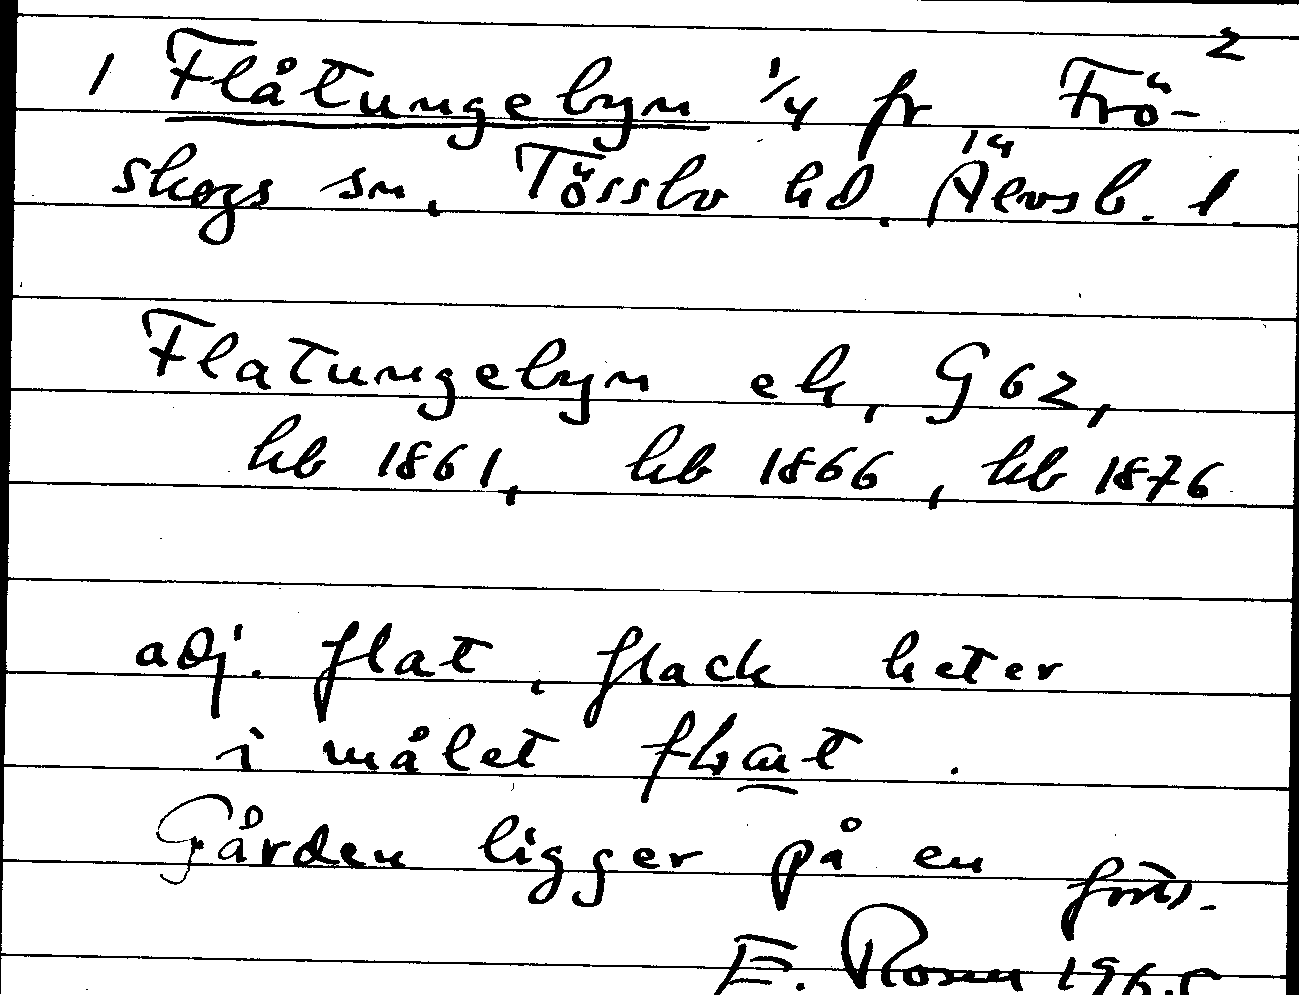 2
1 Flåtungebyn 1/4 fr Frö-
skogs sn, Tössbo hd. Älvsb. l.
Flatungebyn ek, G 62,
hb 1861, hb 1866, hb 1876
adj. flat, flack heter
i målet
Gården ligger på en forts.
E. Rosen 1965